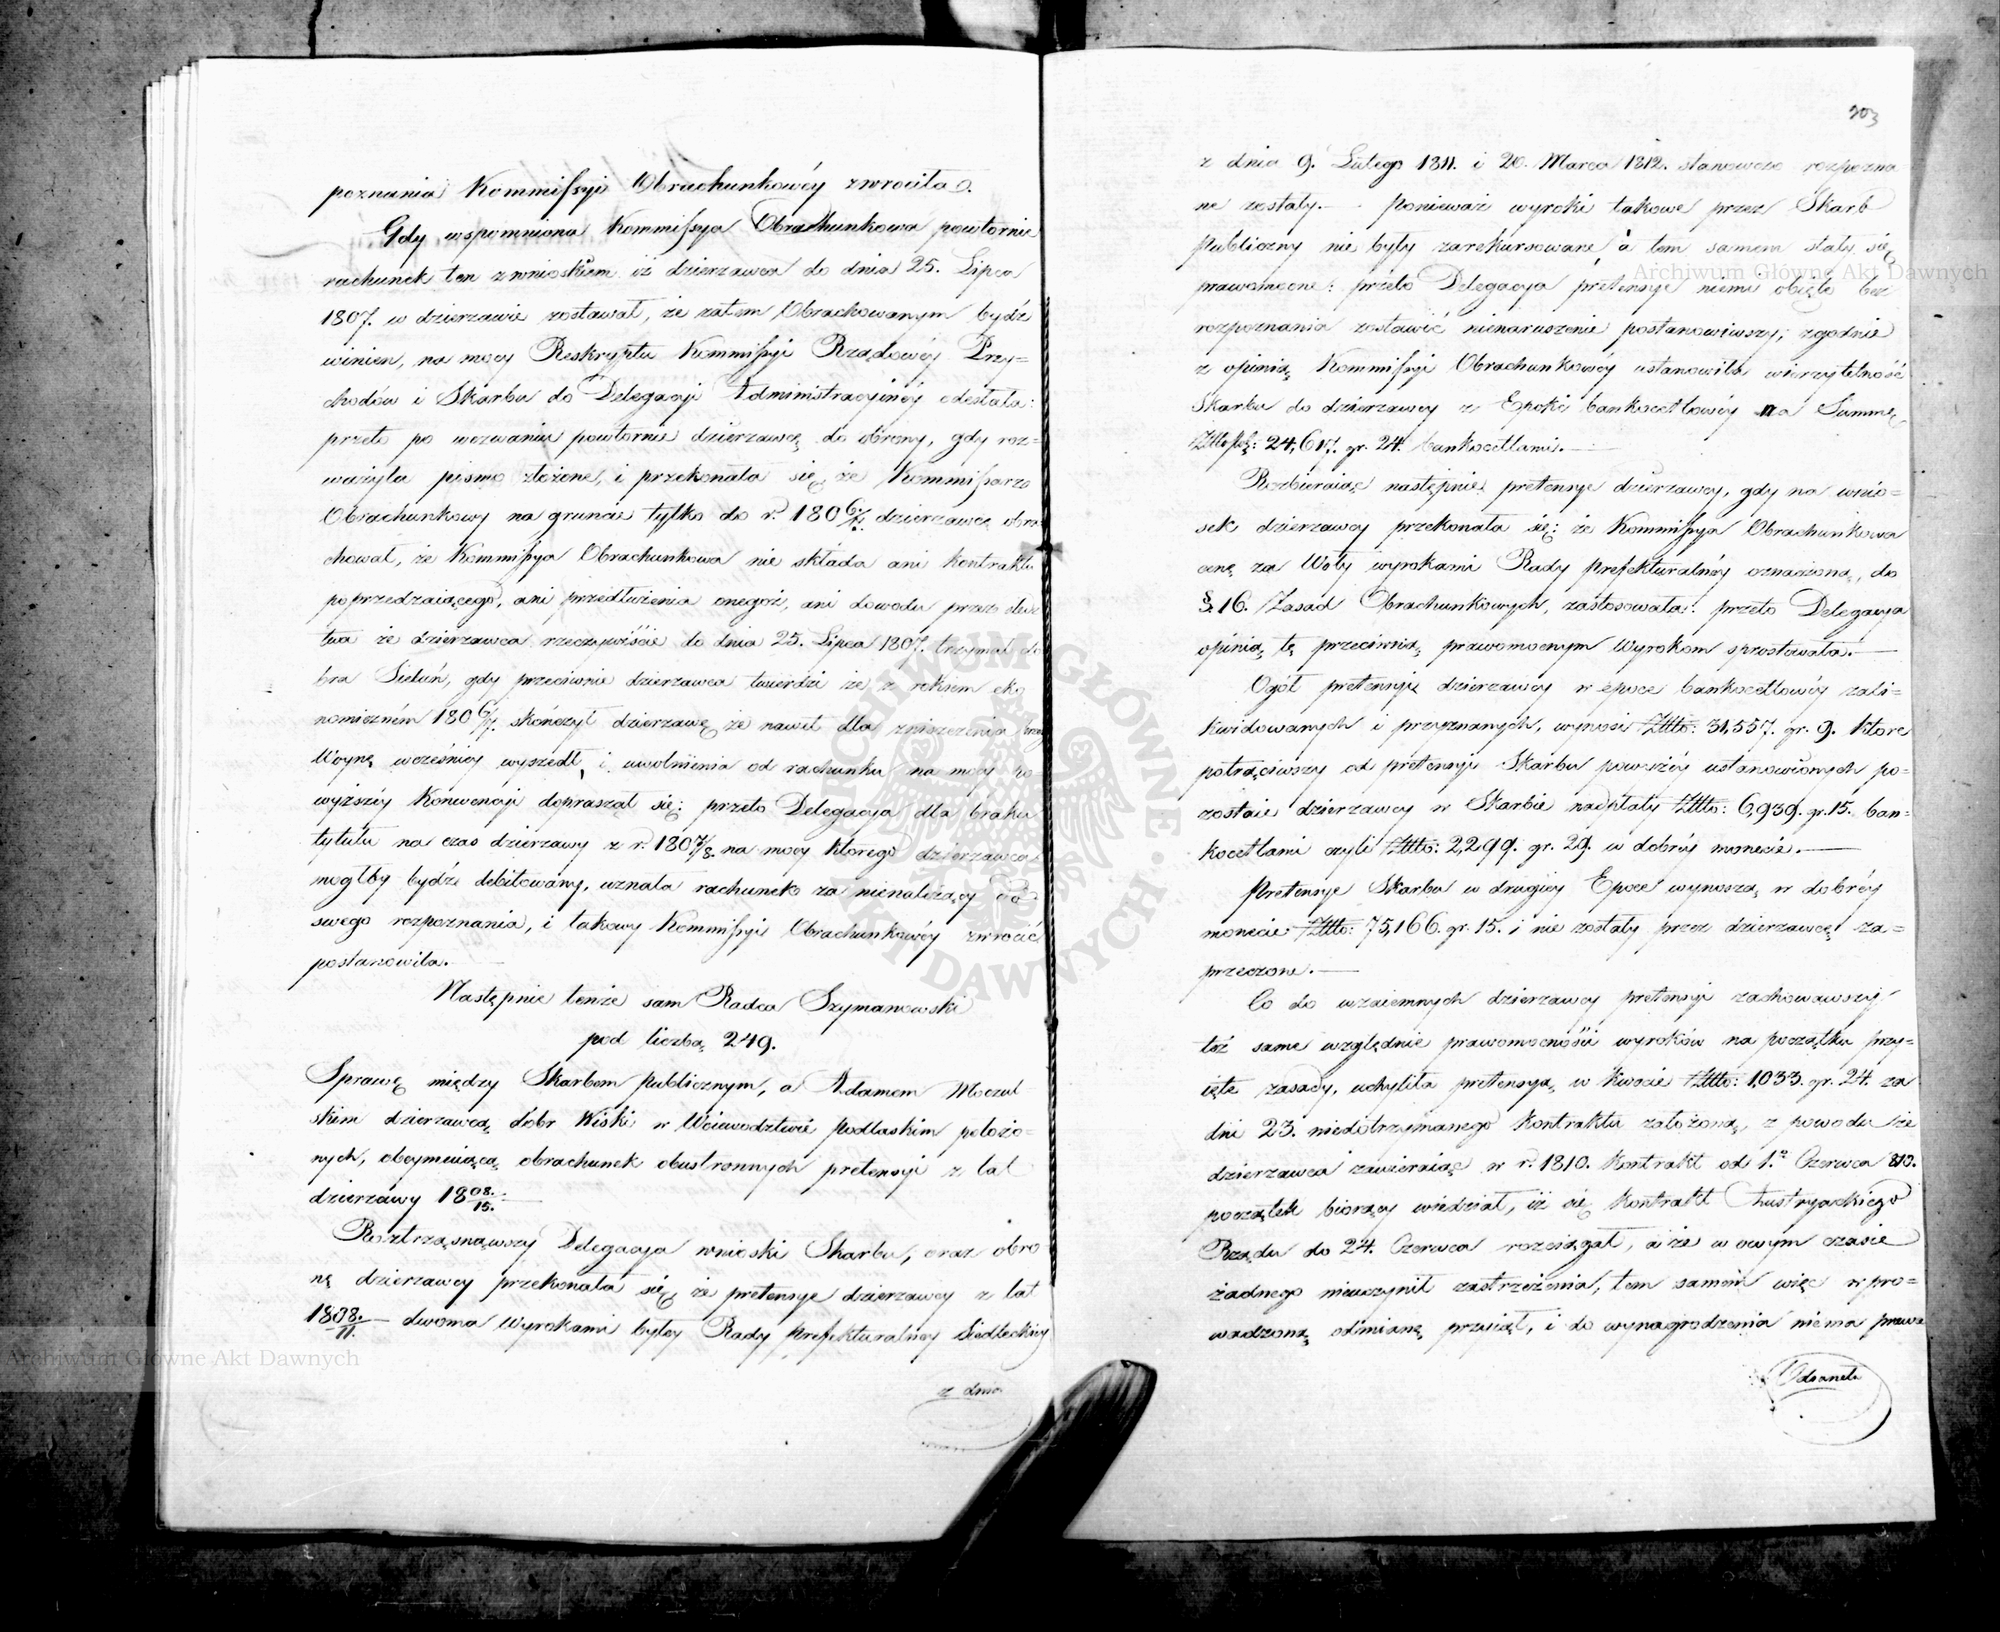 poznania Kommissyi Obrachunkowéy zwrociła.
Gdy wspomniona Kommissya Obrachunkowa powtornie
rachunek ten z wnioskiem iż dzierzawca do dnia 25. Lipca
1807. w dzierzawie zostawał, że zatem Obrachowanym bydź
winien, na mocy Reskryptu Kommissyi Rządowéy Przy=
chodów i Skarbu do Delegacyi Administracyinéy odesłała:
przeto po wezwaniu powtornie dzierzawcę do obrony, gdy roz=
ważyła pismo złożone, i przekonała się, że Kommissarz
Obrachunkowy na gruncie tylko do r. 1806/7. dzierzawcę obra
chował, że Kommissya Obrachunkowa nie składa ani kontraktu
poprzedzaiącego, ani przedłużenia onegoż, ani dowodu przez
twa że dzierzawca rzeczywiście do dnia 25. Lipca 1807. trzymał do
bra Sieluń, gdy przeciwnie dzierzawca twierdzi że z rokiem eko
nomiczném 1806/7. skończył dzierzawę, że nawet dla zniszczenia przez
Woynę wcześniéy wyszedł, i uwolnienia od rachunku na mocy po
wyższéy Konwencyi dopraszał się: przeto Delegacya dla braku
tytułu na czas dzierzawy z r. 1807/8. na mocy ktorego dzierzawca
mogłby bydź debitowany, uznała rachunek za nienależący do
swego rozpoznania, i takowy Kommissyi Obrachunkowéy zwrócić
postanowiła.
Następnie tenże sam Radca Szymanowski
pod liczbą 249.
Sprawę między Skarbem publicznym, a Adamem Moczul
skim dzierzawcą dobr Kiski w Woiewodztwie Podlaskim położo=
nych, obeymuiącą obrachunek obustronnych pretensyi z lat
dzierzawy 1808./15.
Roztrząsnąwszy Delegacya wnioski Skarbu, oraz obro
nę dzierzawcy przekonała się, że pretensye dzierzawcy z lat
1808./11. dwoma Wyrokami byłey Rady Prefekturalnéy Siedleckiéy
z dnia
303
z dnia 9. Lutego 1811. i 20. Marca 1812. stanowczo rozpozna
ne zostały. Ponieważ wyroki takowe przez Skarb
Publiczny nie były zarekursowane, a tem samem stały się
prawomocne: przeto Delegacya pretensye niemi obięte bez
rozpoznania zostawić nienaruszenie postanowiwszy, zgodnie
z opinią Kommissyi Obrachunkowéy ustanowiła wierzytelność
Skarbu do dzierzawcy z Epoki bankocetlowéy na Summę
Złłp: 24,617. gr. 24. bankocetlami.
Rozbieraiąc następnie pretensye dzierzawcy, gdy na wnio=
sek dzierzawcy przekonała się: że Kommissya Obrachunkowa
cenę za Woły wyrokami Rady Prefekturalnéy oznaczoną, do
§. 16. Zasad Obrachunkowych, zastosowała: przeto Delegacya
opinią tę przeciwną prawomocnym Wyrokom sprostowała.
Ogół pretensyi dzierzawcy w epoce bankocetlowéy zali=
kwidowanych i przyznanych, wynosi Złłto: 31,557. gr. 9. ktore
potrąciwszy od pretensyi Skarbu powyżéy ustanowionych po=
zostaie dzierzawcy w Skarbie nadpłaty Złłto: 6,939. gr. 15. ban=
kocetlami czyli Złłto: 2,299. gr. 29. w dobréy monecie.
Pretensye Skarbu w drugiéy Epoce wynoszą w dobréy
monecie Złłto: 75,166. gr. 15. i nie zostały przez dzierzawcę za=
przeczone.
Co do wzaiemnych dzierzawcy pretensyi zachowawszy
też same względnie prawomocności wyroków na początku przy=
ięte zasady, uchyliła pretensyą w kwocie Złłto: 1,033. gr. 24. za
dni 23. niedotrzymanego kontraktu założoną, z powodu że
dzierzawca zawieraiąc w r. 1810. kontrakt od 1.º Czerwca 810.
początek biorący wiedział, iż się kontrakt Austryackiego
Rządu do 24. Czerwca rozciągał, a że w owym czasie
żadnego nieuczynił zastrzeżenia, tem samém więc wpro=
wadzoną odmianę przyiął, i do wynagrodzenia niema prawa
Archiwum Główne Akt Dawnych
Archiwum Główne Akt Dawnych
ARCHIWUM GŁÓWNE AKT DAWNYCH